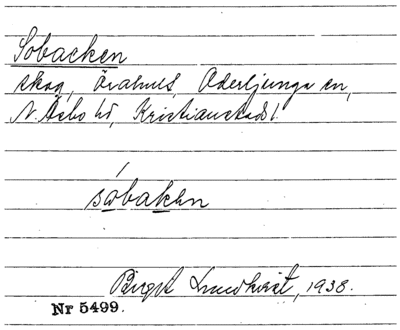 Sobacken
skog, Örahult, Oderljunga sn,
N. Åsbo hd, Kristianstads l.
sωbakən
Birgit Lundkvist, 1938.
Nr 5499.